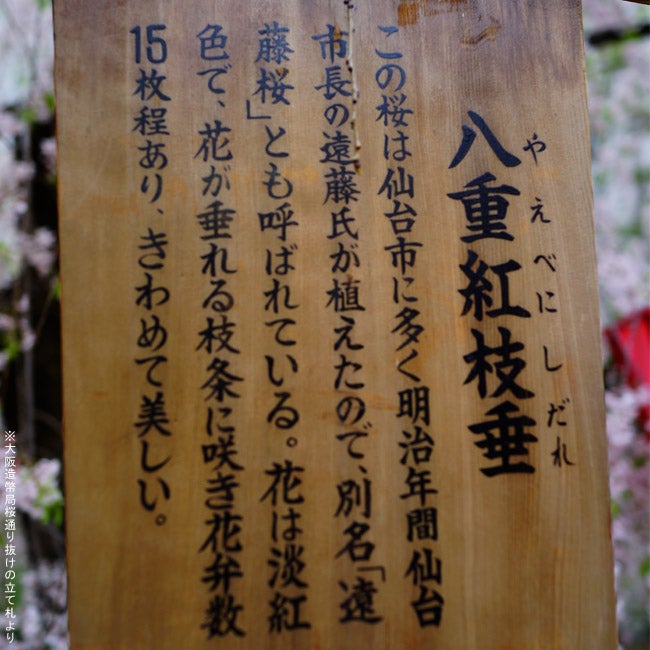 八重紅枝垂
やえべにしだれ
この桜は仙台市に多く明治年間仙台
市長の遠藤氏が植えたので、別名「遠
藤桜」とも呼ばれている。花は淡紅
色で、花が垂れる枝条に咲き花弁数
15枚程あり、きわめて美しい。
※大阪造幣局桜通り抜けの立て札より